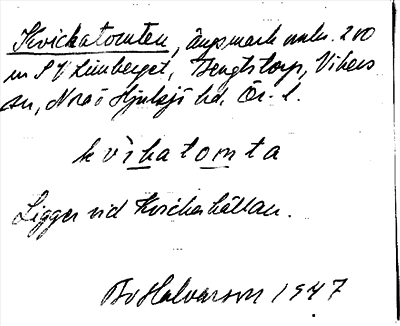 Kvickatomten, ängsmark omkr. 200
m SV Limberget, Bengtstorp, Vikers
sn, Nora o Hjulsjö hd. Ör. l.
kvikatomta
Ligger vid Kvickahällan.
Bo Halvarson 1947